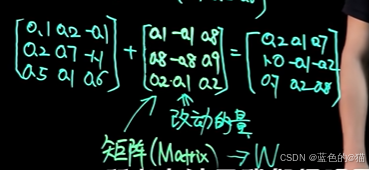 [0.1 0.2 -0.1] [0.1 -0.1 0.8] [0.2 0.1 0.7]
[0.2 0.7 -1.1] + [0.8 -0.8 0.9] = [1.0 -0.1 -0.2]
[0.5 0.1 0.6] [0.2 -0.1 0.2] [0.7 0.2 -0.8]
改动的量
矩阵(Matrix) → W
CSDN @蓝色的@猫